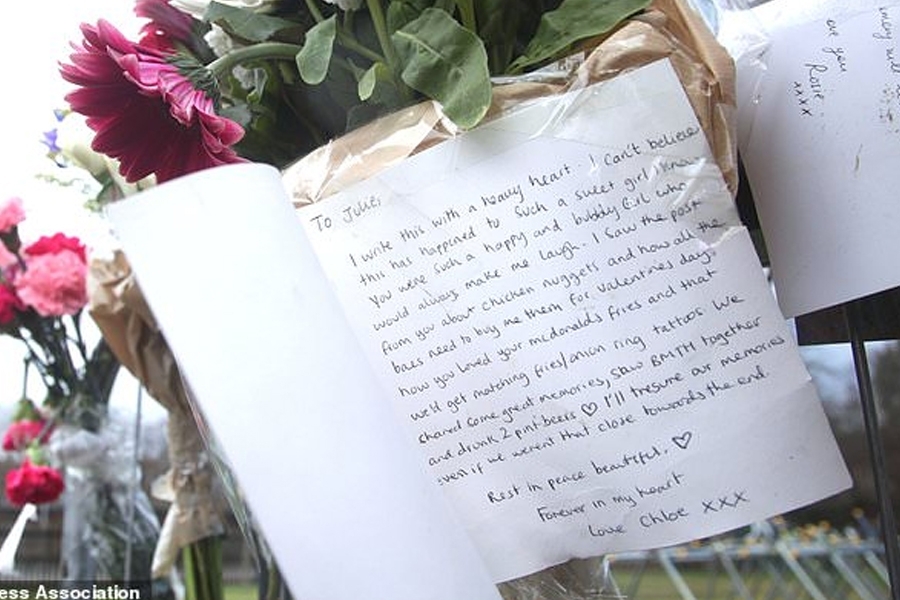 To Julie,
I write this with a heavy heart. I can't believe
this has happened to such a sweet girl I know
you were such a happy and bubbly girl who
would always make me laugh. I saw the post
from you about chicken nuggets and how all the
baes need to buy me them for valentines day.
how you loved your mcdonald's fries and that
we'd get matching fries/onion ring tattoos. We
shared some great memories, saw BMTH together
and drunk 2 pint beers ♡ I'll tresure our memories
even if we werent that close towards the end.
Rest in peace beautiful. ♡
Forever in my heart
love Chloe xxx
will
you
Rosie
xxxx
ess Association